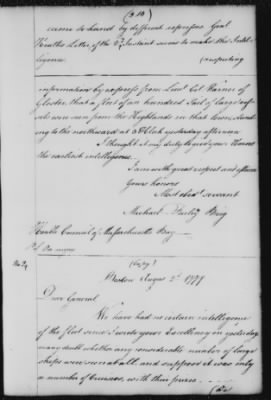 (210)
came to hand by different expresses Genl.
Heath's Letter of the 2d Instant seems to make the Intel-
ligence
(respecting
information by express from Lieut Col Barnes of
Gloster that a fleet of an hundred Sail of large vess-
els were seen from the Highlands in that town, stand-
ing to the northward at 5 O'clock yesterday afternoon
I thought it my duty to give your Honours
the earliest intelligence
I am with great respect and esteem
Yours honors
Most obedt. servant
Michael Farley Brig
Honble Council of Massachusetts Bay
No 24
(Copy)
Boston Augt 2d 1777
Dear General
We have had no certain intelligence
of the fleet since I wrote your Excellency on yesterday
many doubt whether any considerable number of large
ships were seen at all and suppose it was only
a number of Cruisers, with their prizes